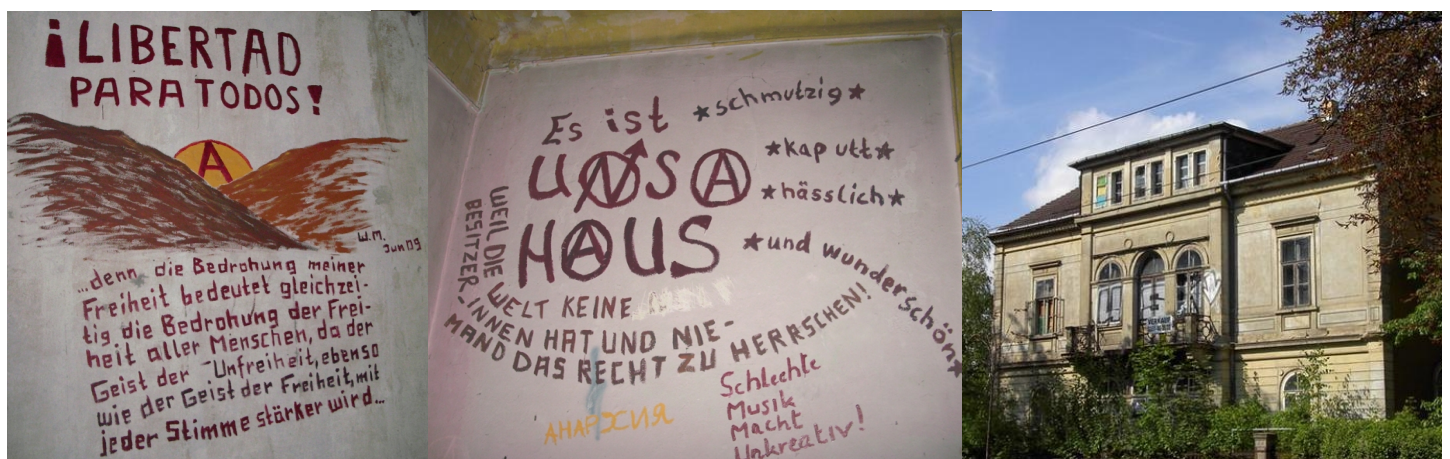 ¡LIBERTAD
PARA TODOS!
A
W.M.
Jun 09
...denn die Bedrohung meiner
Freiheit bedeutet gleichzei-
tig die Bedrohung der Frei-
heit aller Menschen, da der
Geist der Unfreiheit, ebenso
wie der Geist der Freiheit, mit
jeder Stimme stärker wird...
Es ist
UNSA
HAUS
★schmutzig★
★kaputt★
★hässlich★
★und wunderschön★
WEIL DIE WELT KEINE
BESITZER_INNEN HAT UND NIE-
MAND DAS RECHT ZU HERRSCHEN!
АНАРХИЯ
Schlechte
Musik
Macht
Unkreativ!